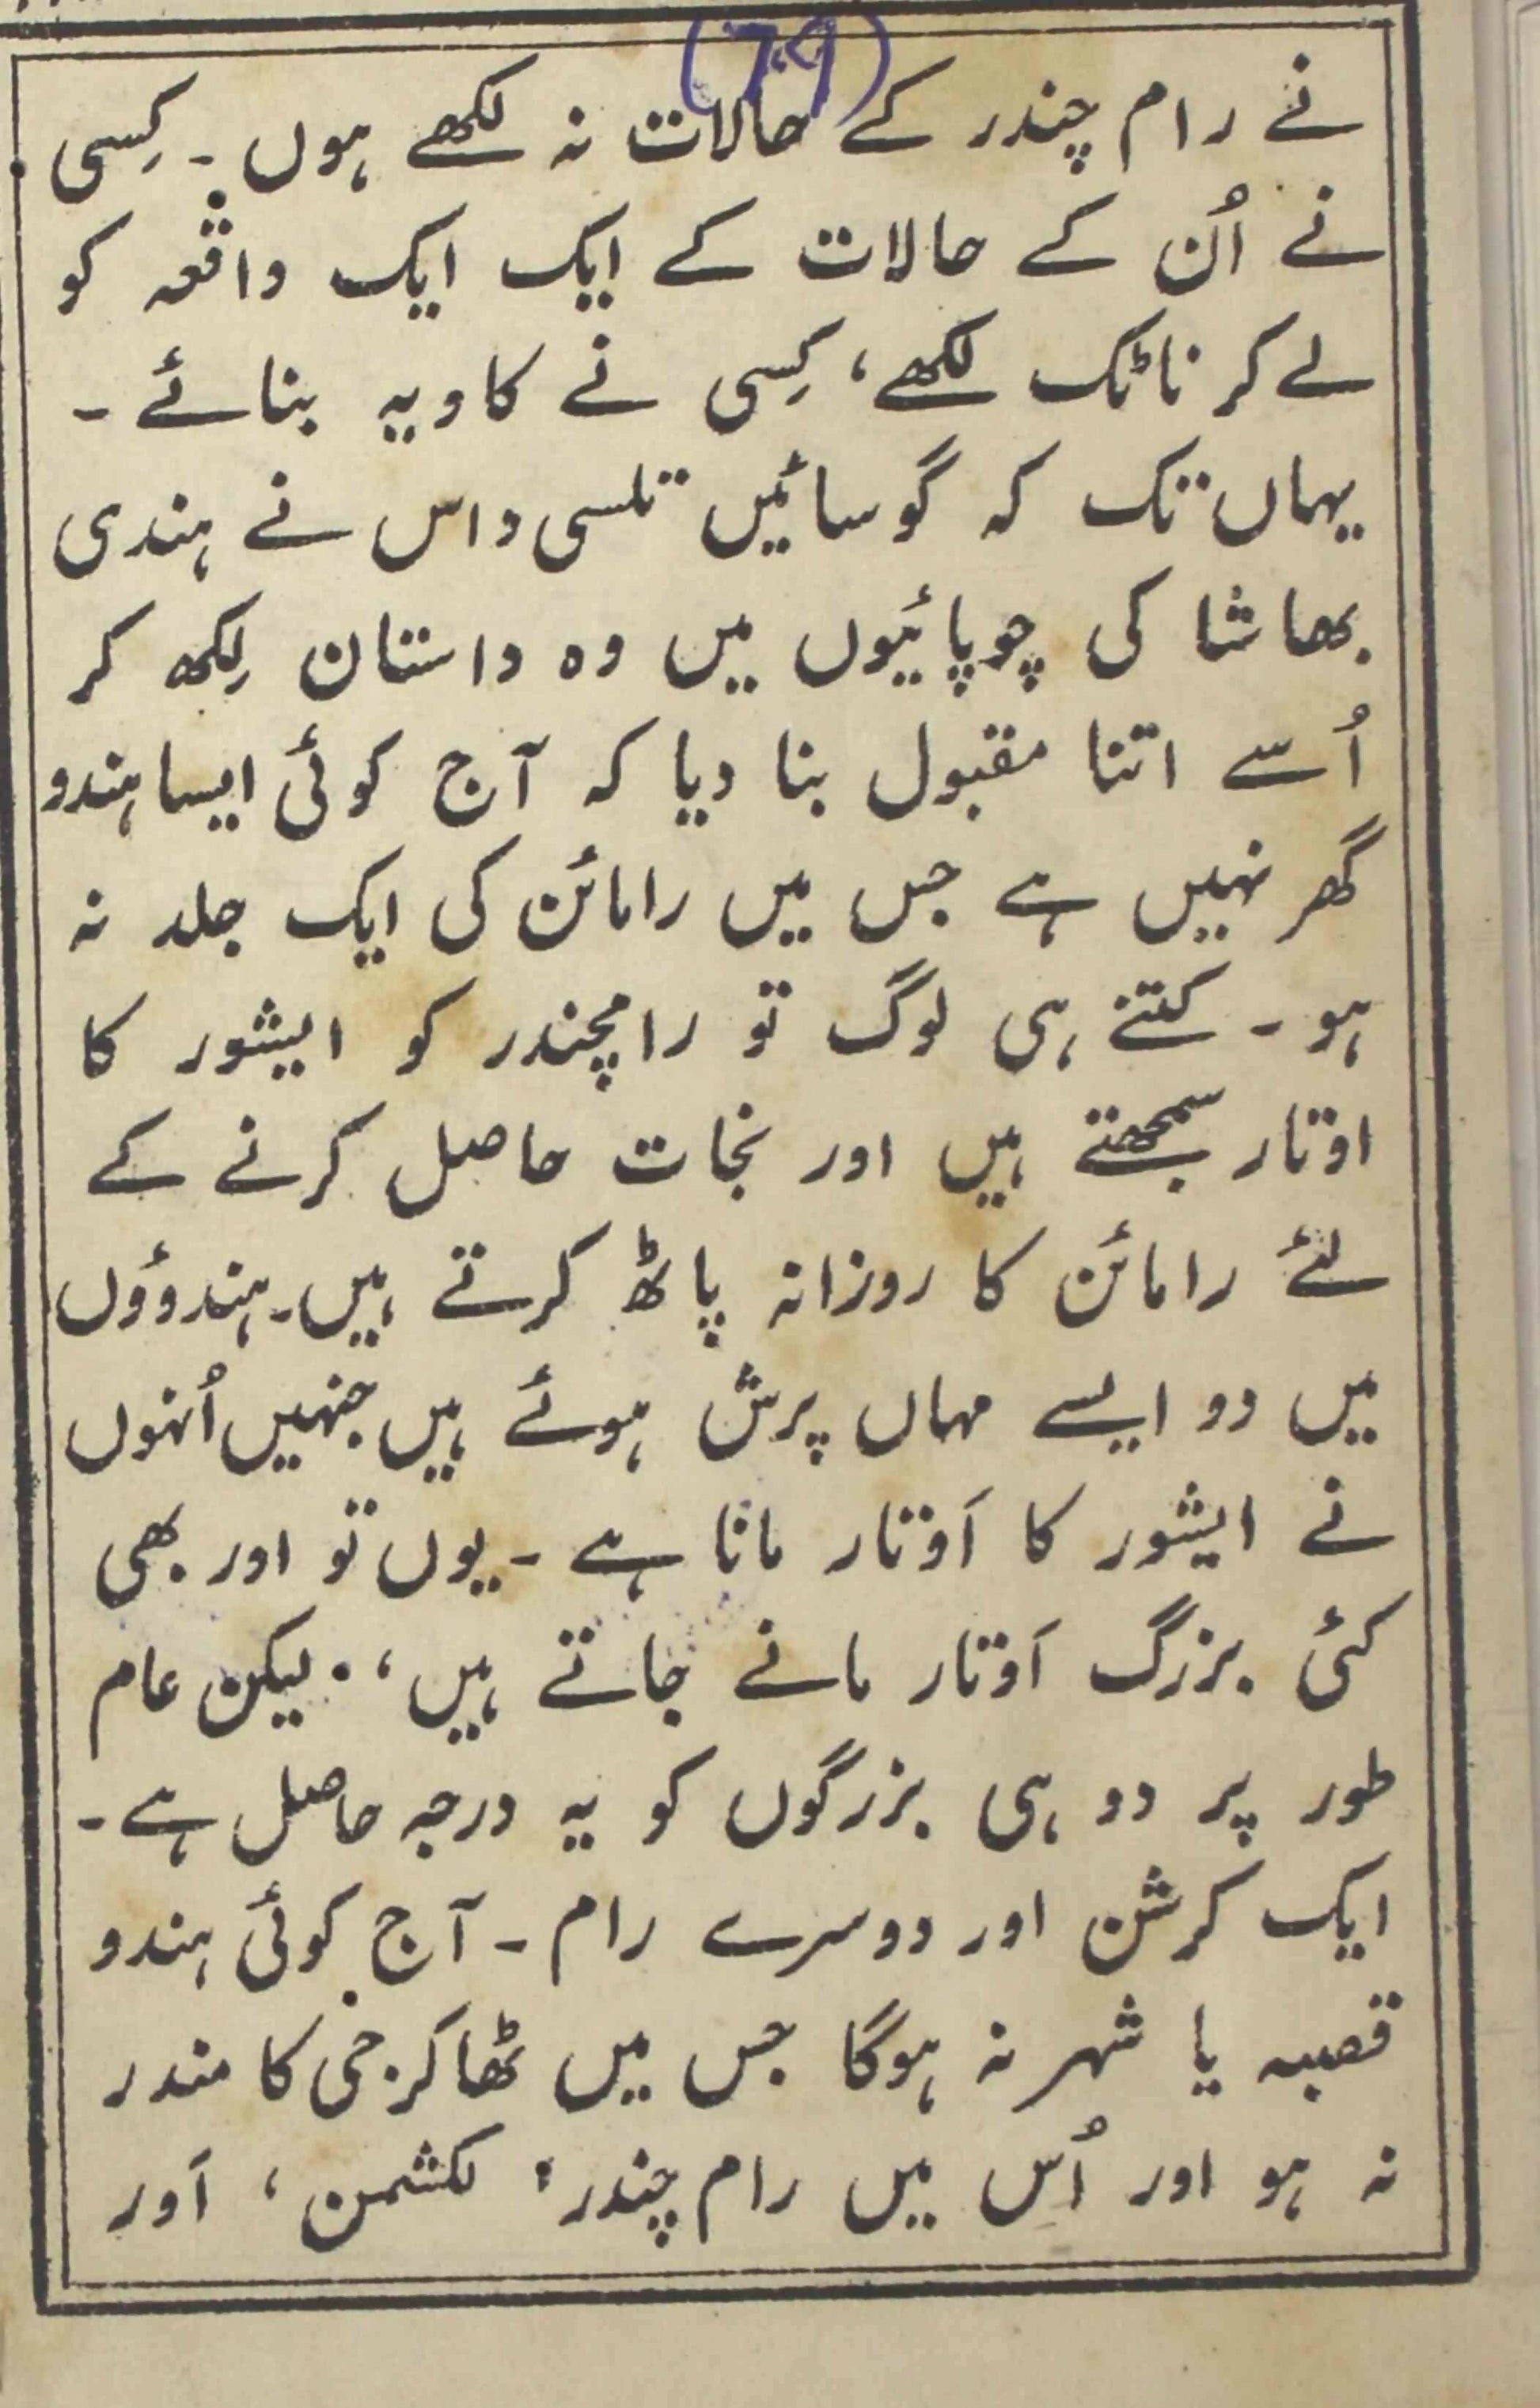 نے رام چندر کے حالات نہ لکھے ہوں ۔ کِسی
نے اُن کے حالات کے ایک ایک واقعہ کو
لے کر ناٹک لکھے، کِسی نے کاویہ بنائے ۔
یہاں تک کہ گوسائیں تلسی داس نے ہندی
بھاشا کی چوپائیوں میں وہ داستان لِکھ کر
اُسے اتنا مقبول بنا دیا کہ آج کوئی ایسا ہندو
گھر نہیں ہے جس میں رامائن کی ایک جلد نہ
ہو ۔ کتنے ہی لوگ تو رامچندر کو ایشور کا
اوتار سمجھتے ہیں اور نجات حاصل کرنے کے
لئے رامائن کا روزانہ پاٹھ کرتے ہیں۔ ہندوؤں
میں دو ایسے مہاں پرش ہوئے ہیں جنہیں اُنہوں
نے ایشور کا اَوتار مانا ہے ۔ یوں تو اور بھی
کئی بزرگ اَوتار مانے جاتے ہیں، لیکن عام
طور پر دو ہی بزرگوں کو یہ درجہ حاصل ہے ۔
ایک کرشن اور دوسرے رام ۔ آج کوئی ہندو
قصبہ یا شہر نہ ہوگا جس میں ٹھاکر جی کا مندر
نہ ہو اور اُس میں رام چندر، لکشمن، اَور